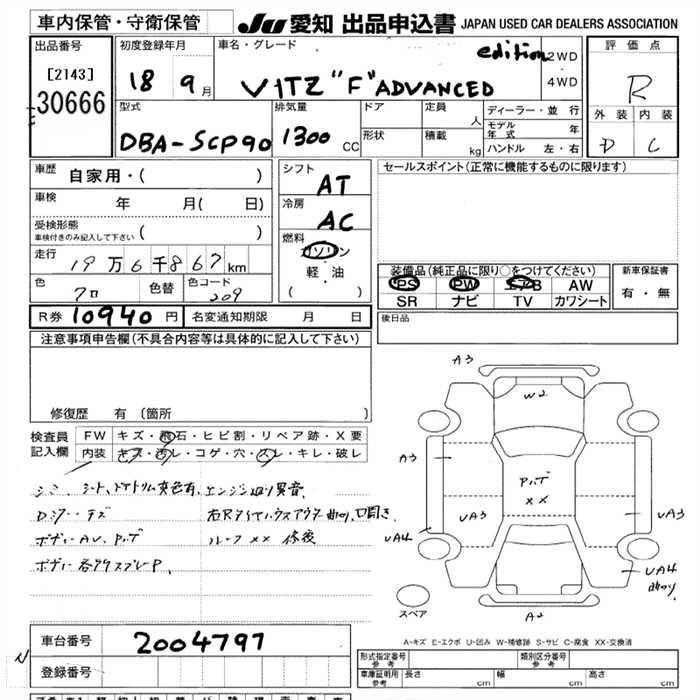 車内保管・守衛保管
JU 愛知 出品申込書 JAPAN USED CAR DEALERS ASSOCIATION
出品番号
[2143]
30666
初度登録年月
18 9月
車名・グレード
VITZ "F" ADVANCED edition
2WD
・
4WD
評価点
R
外装 内装
D C
型式
DBA-SCP90
排気量
1300 CC
ドア
定員
人
形状
積載
kg
ディーラー・並行
モデル年式 年
ハンドル 左・右
車歴 自家用・( )
車検 年 月( 日)
受検形態
車検付きのみ記入して下さい ( )
走行 19万6千867km
色 クロ 色替 色コード 209
シフト
AT
冷房
AC
燃料
ガソリン
軽・油
( )
セールスポイント(正常に機能するものに限ります)
装備品(純正品に限り○をつけてください)
PS PW エアB AW
SR ナビ TV カワシート
新車保証書
有・無
R券 10940円 名変通知期限 月 日
後日品
注意事項申告欄(不具合内容等は具体的に記入して下さい)
修復歴 有(箇所 )
検査員
記入欄
FW キズ・飛石・ヒビ割・リペア跡・X要
内装 キズ・汚レ・コゲ・穴・スレ・キレ・破レ
シミ、シート、ドアトリム変色有、エンジン廻り異音
ルーフ XX 修後
A3
W2
A3
XX
UA3
UA3
UA4
UA4
A2
スペア
A-キズ E-エクボ U-凹み W-補修跡 S-サビ C-腐食 XX-交換済
車台番号 2004797
登録番号
形式指定番号
参考
類別区分番号
参考
車庫証明用
参考
長さ cm 幅 cm 高さ cm